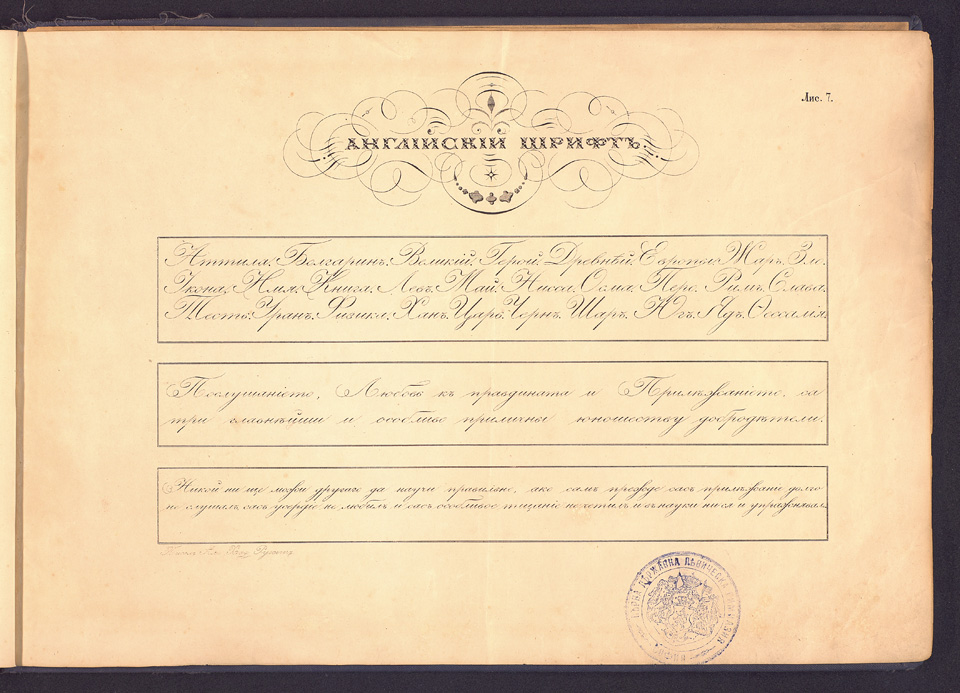 Лис. 7.
АНГЛІЙСКІЙ ШРИФТЪ.
Аттила. Болгаринъ. Великій. Герой. Древнѣй. Европы. Жаръ. Зло.
Икона. Имя. Книга. Левъ. Май. Нисса. Осма. Перо. Римъ. Слава.
Тесть. Уранъ. Физика. Ханъ. Царь. Чернъ. Шаръ. Югъ. Ядъ. Ѳессалія.
Послушаніето, Любовь къ правдината и Прилѣжаніето, са
три главнѣйши и особливо прилични юношеству добродѣтели.
Никой ни ще може другиго да научи правилно, ако самъ прежде съсъ прилѣжаніе дълго
не слушалъ съсъ усердіе не любилъ и съсъ особливое тщаніе не хотилъ и въ науки не ся и упражнявал.
ДЪРЖАВНА ДѢВИЧЕСКА ГИМНАЗИЯ